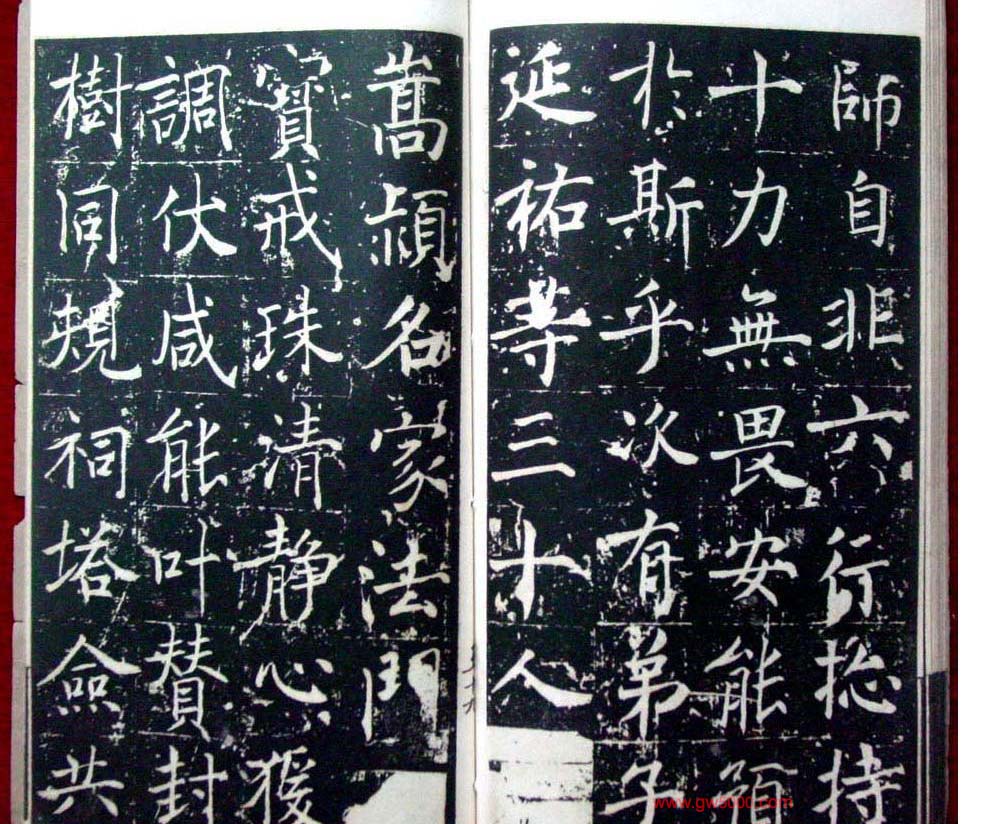 師自非六行揔持
十力無畏安能預
於斯乎次有弟子
延祐等三十人
嵩潁名家法門
寶戒珠清靜心猨
調伏咸能叶贊封
樹同規祠塔僉共